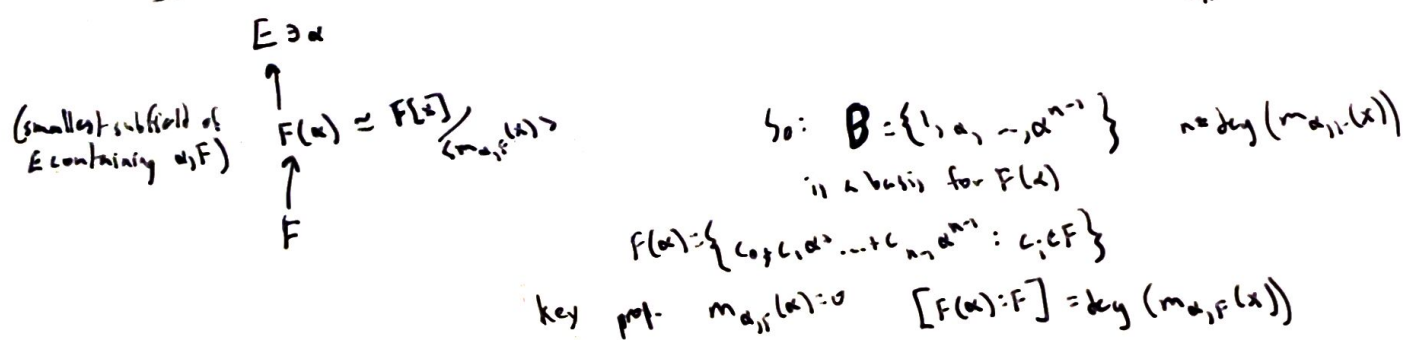 E ∋ α
↑
(smallest subfield of E containing α, F) F(α) ≃ F[x]/<m_{α,F}(x)>
↑
F
So: B = {1, α, ~, α^{n-1}} n = deg(m_{α,F}(x))
is a basis for F(α)
F(α) = {c_0 + c_1 α + ... + c_{n-1} α^{n-1} : c_i ∈ F}
key prop. m_{α,F}(α) = 0 [F(α):F] = deg(m_{α,F}(x))